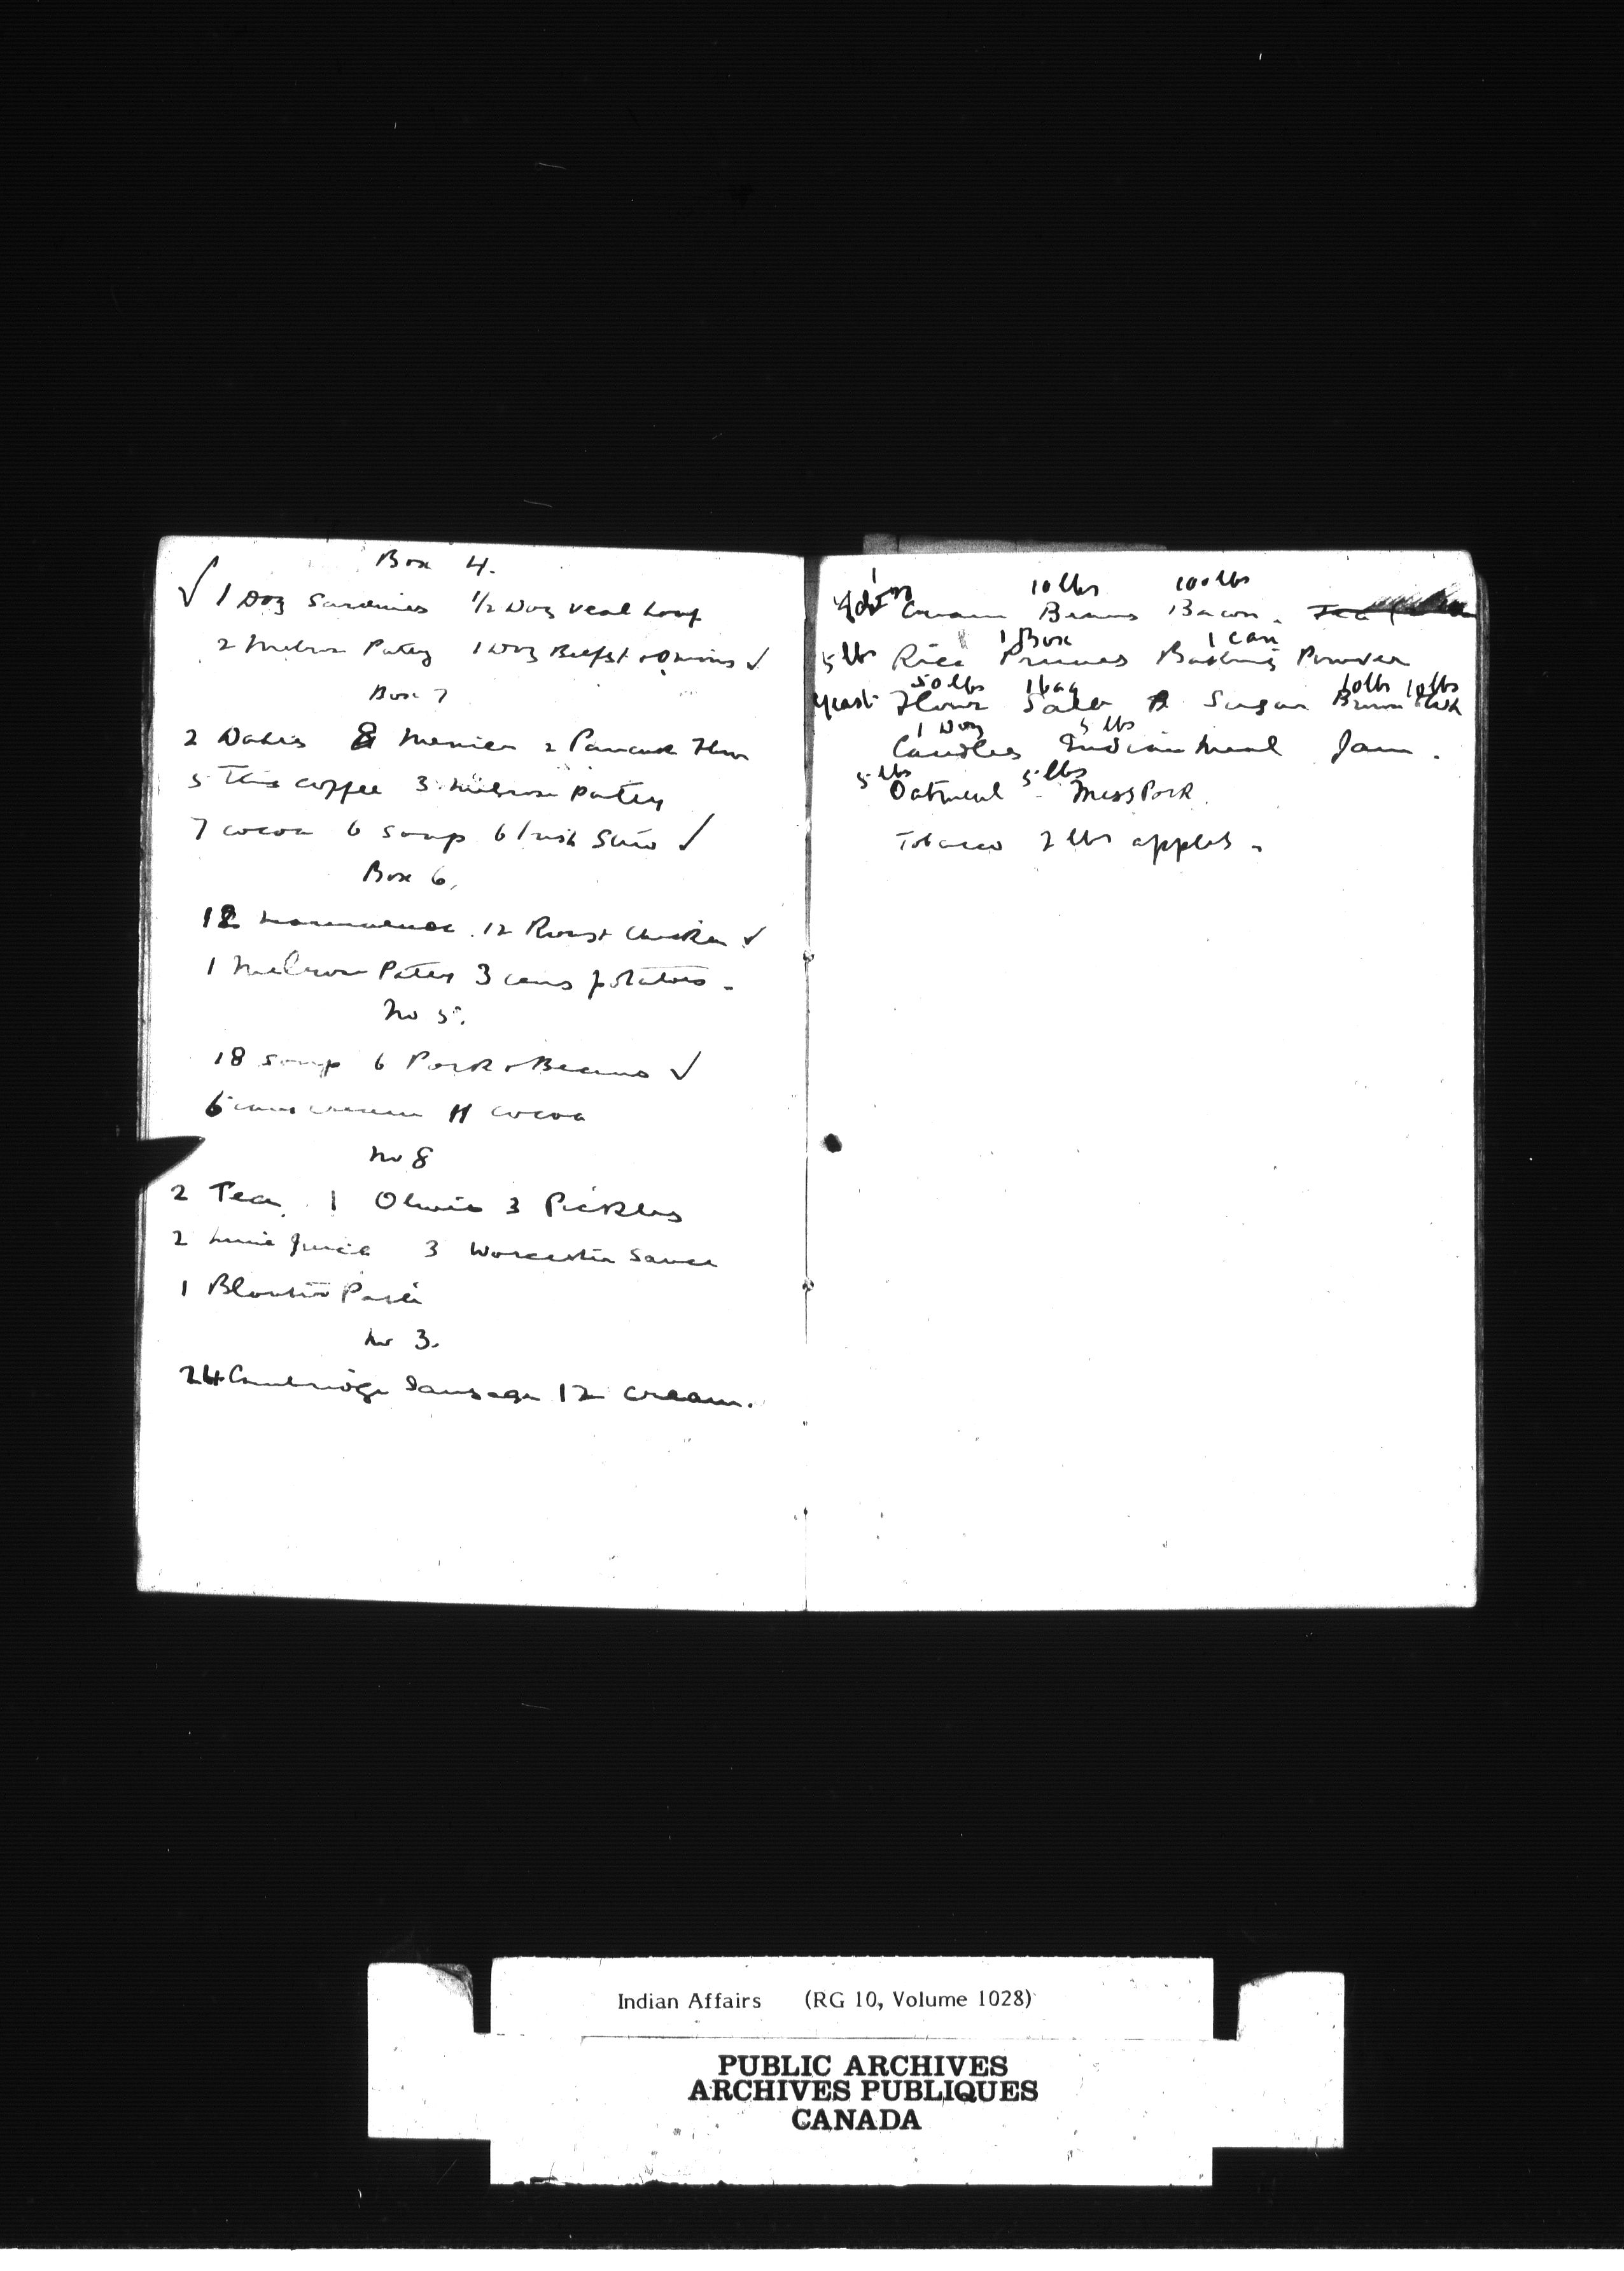 Box 4.
√ 1 Doz Sardines 1/2 Doz Veal Loaf
2 Melrose Patey 1 Doz Beefst + Onions √
Box 7
2 Dates 8 Menier 2 Pancake Flour
5 Tins Coffee 3 Melrose Patey
7 cocoa 6 soup 6 Irish Stew √
Box 6.
12 Marmalade. 12 Roast Chicken √
1 Melrose Patey 3 cans potatoes -
No 5.
18 soup 6 Pork + Beans √
6 cans cream 11 cocoa
No 8
2 Tea. 1 Olives 3 Pickles
2 Lime Juice 3 Worcester Sauce
1 Bloater Paste
No 3.
24 Cambridge Sausage 12 cream.
1 Doz 10 lbs 100 lbs
Cream Beans Bacon. Tea
1 Box 1 can
5 lbs Rice Prunes Baking Powder
50 lbs 1 bag 10 lbs 10 lbs
Yeast Flour Salt Sugar Brown
1 Doz 5 lbs
Candles Indian Meal Jam.
5 lbs 5 lbs
Oatmeal - Mess Pork.
Tobacco 2 lbs apples -
Indian Affairs (RG 10, Volume 1028)
PUBLIC ARCHIVES
ARCHIVES PUBLIQUES
CANADA